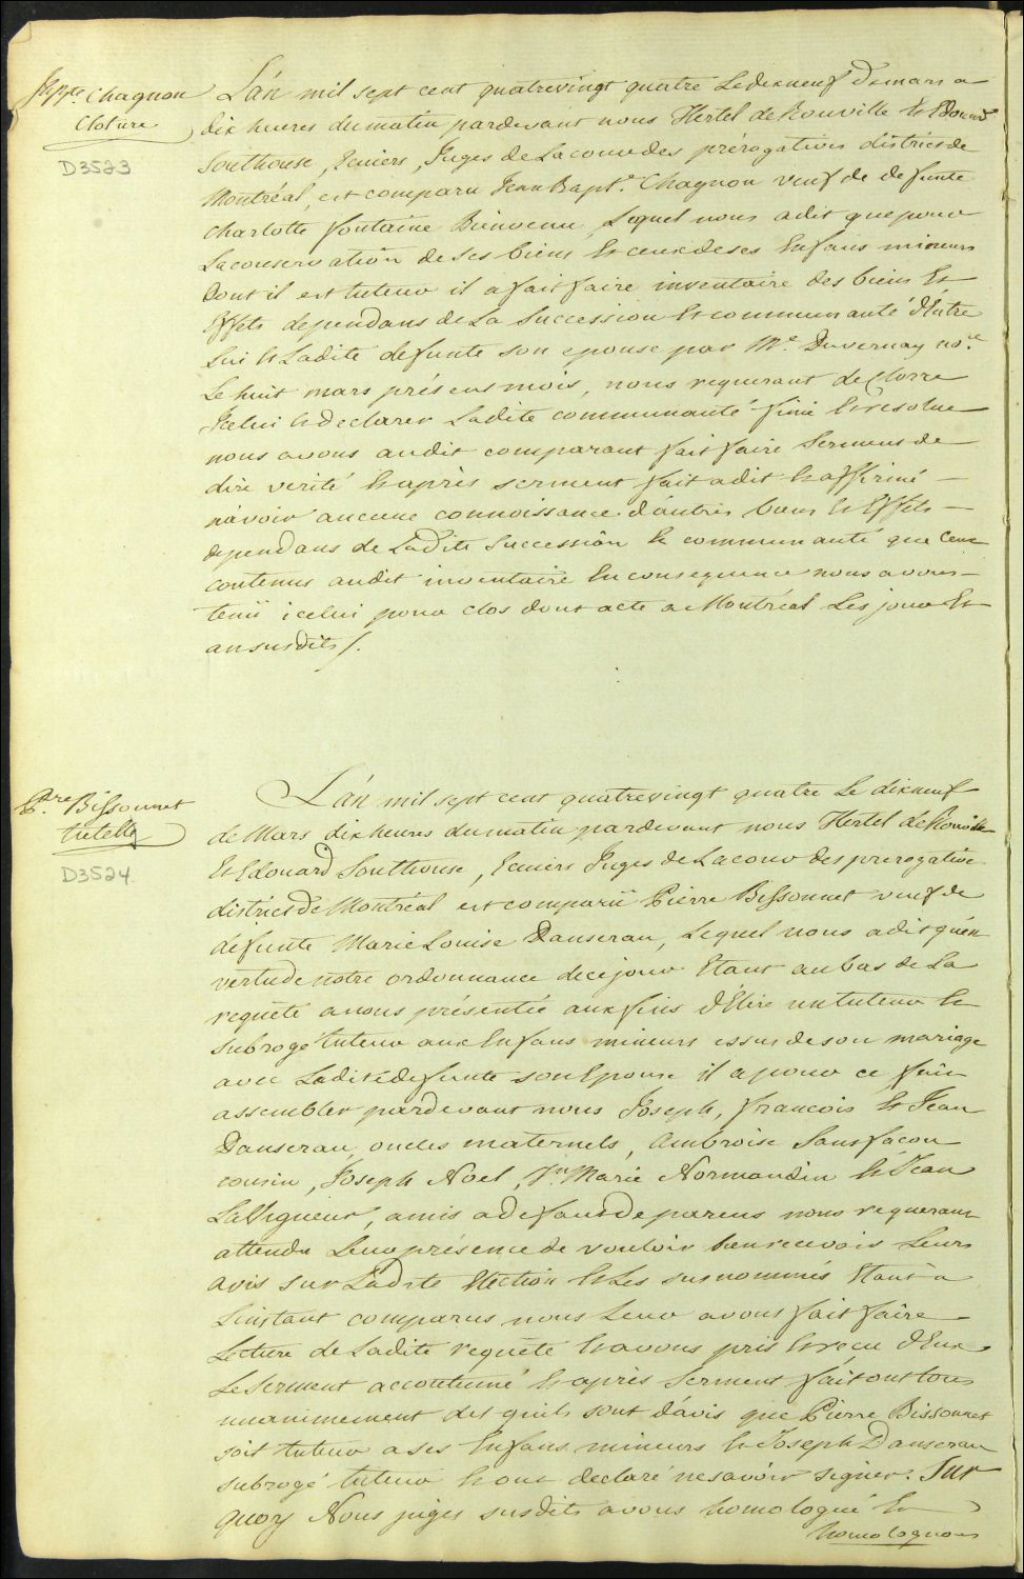 Jn Bpte. Chagnon
Cloture
D3523
L'an mil sept cent quatrevingt quatre Le dixneuf de mars a
dix heures du matin pardevant nous Hertel de Rouville & Edouard
Southouse, Ecuiers, Juges de La cour des prérogatives district de
Montréal, est comparu Jean Bapte. Chagnon veuf de defunte
Charlotte fontaine Bienvenu, Lequel nous a dit que pour
La conservation de ses biens & ceux de ses Enfans mineurs
Dont il est tuteur il a fait faire inventaire des biens &
Effets dependans de La Succession & communauté d'Entre
Lui & Ladite defunte son epouse par Me. Duvernay nore.
Le huit mars présent mois, nous requerant de Clorre
Icelui & declarer Ladite communauté finie & resolue
nous avons audit comparant fait faire Serment de
dire verité & après serment fait a dit & affirmé —
n'avoir aucune connoissance d'autres biens & Effets —
dependans de Ladite Succession & communauté que Ceux
contenus audit inventaire En consequence nous avons —
tenü icelui pour clos dont acte a Montréal Les jour &
an susdits /.
Prre. Bissonnet
tutelle
D3524
L'an mil sept cent quatrevingt quatre Le dixneuf
de Mars dix heures du matin pardevant nous Hertel de Rouville
& Edouard Southouse, Ecuiers Juges de La cour des prerogatives
district de Montréal est comparü Pierre Bissonnet veuf de
défunte Marie Louise Danserau, Lequel nous a dit qu'en
vertu de notre ordonnance de ce jour Etant au bas de La
requête a nous présentée aux fins d'Elire un tuteur &
Subrogé tuteur aux Enfans mineurs issus de son mariage
avec Ladite defunte son Epouse il a pour ce fait
assembler pardevant nous Joseph, francois & Jean
Danserau, oncles maternels, Ambroise Sansfaçon
cousin, Joseph Noel, Jn Marie Normandin & Jean
LaVigueur, amis a defaut de parens nous requerant
attendu Leur présence de vouloir bien recevoir Leurs
avis sur Ladite Election & Les susnommés Etant a
Linstant comparus nous Leur avons fait faire —
Lecture de Ladite requête & avons pris & recu d'Eux
Le Serment accoutumé & après Serment fait ont tous
unanimement dit quils sont d'avis que Pierre Bissonnet
soit tuteur a ses Enfans mineurs & Joseph Danserau
subrogé tuteur & ont declaré ne savoir signer. Sur
quoy Nous juges susdits avons homologué &
homologuons